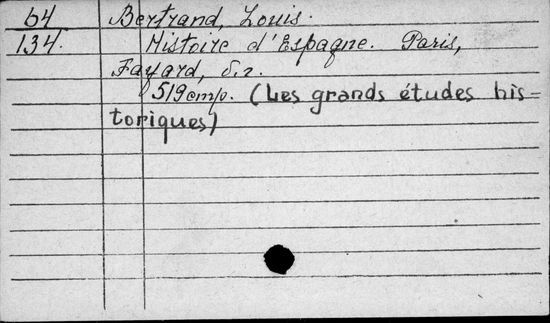 64 Bertrand, Louis.
134. Histoire d'Espagne. Paris,
Fayard, б.г.
519 стр. (Les grands études his-
toriques)